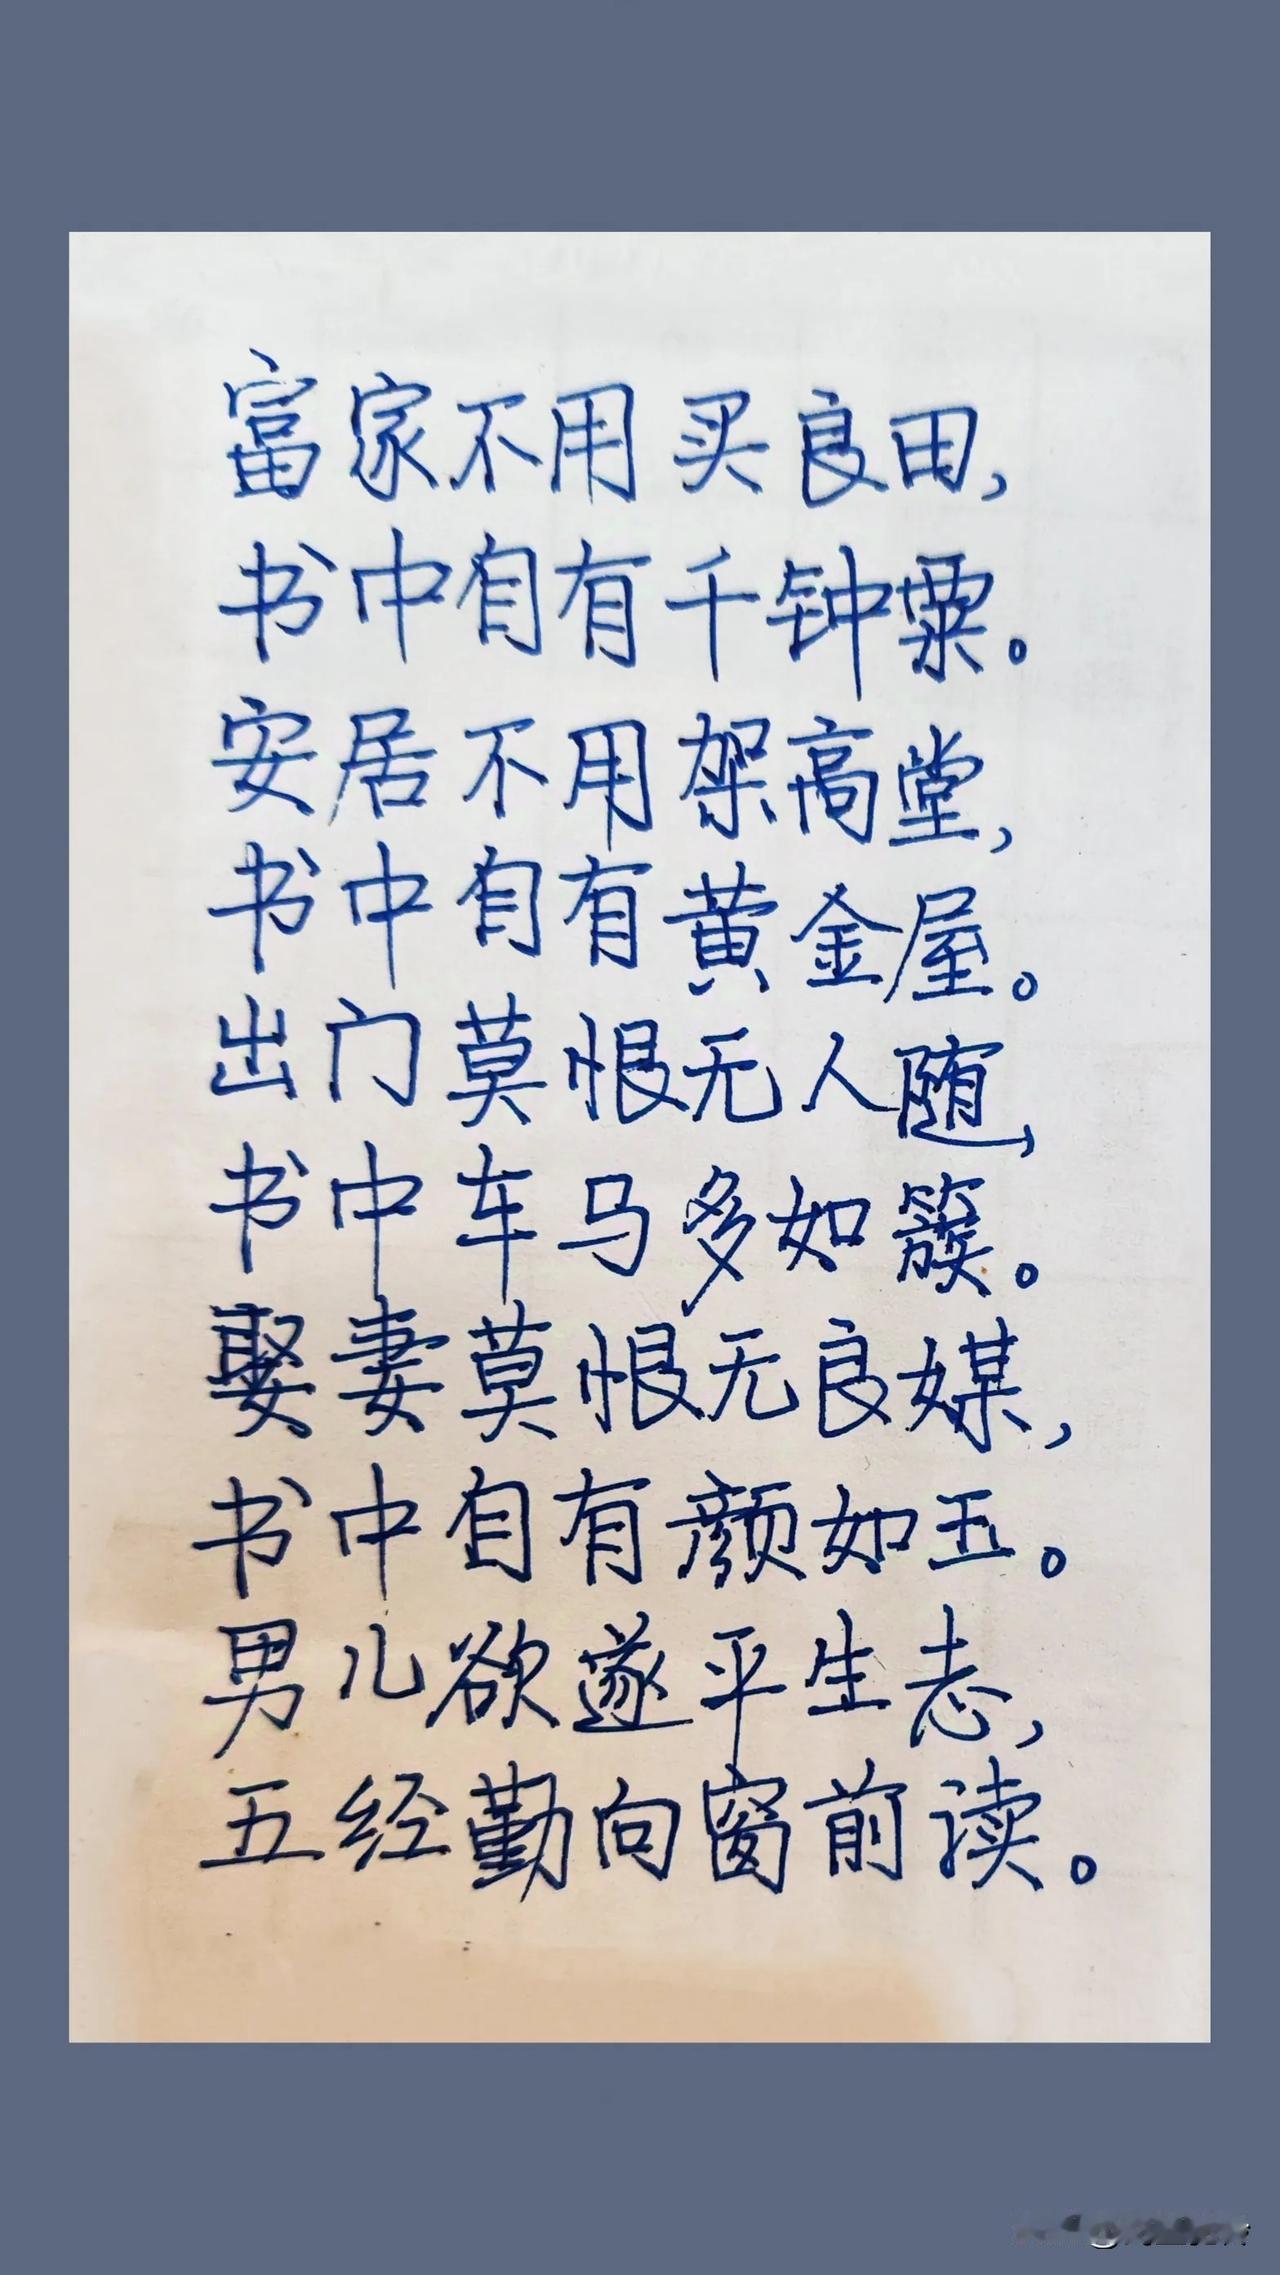 富家不用买良田，
书中自有千钟粟。
安居不用架高堂，
书中自有黄金屋。
出门莫恨无人随，
书中车马多如簇。
娶妻莫恨无良媒，
书中自有颜如玉。
男儿欲遂平生志，
五经勤向窗前读。